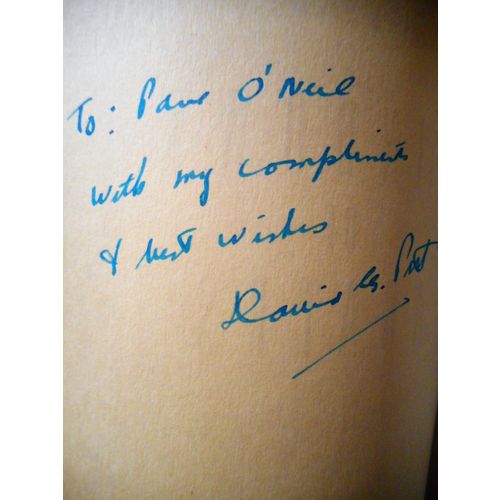 To: Paul O'Neil
with my compliments
& best wishes
David G. Pitt